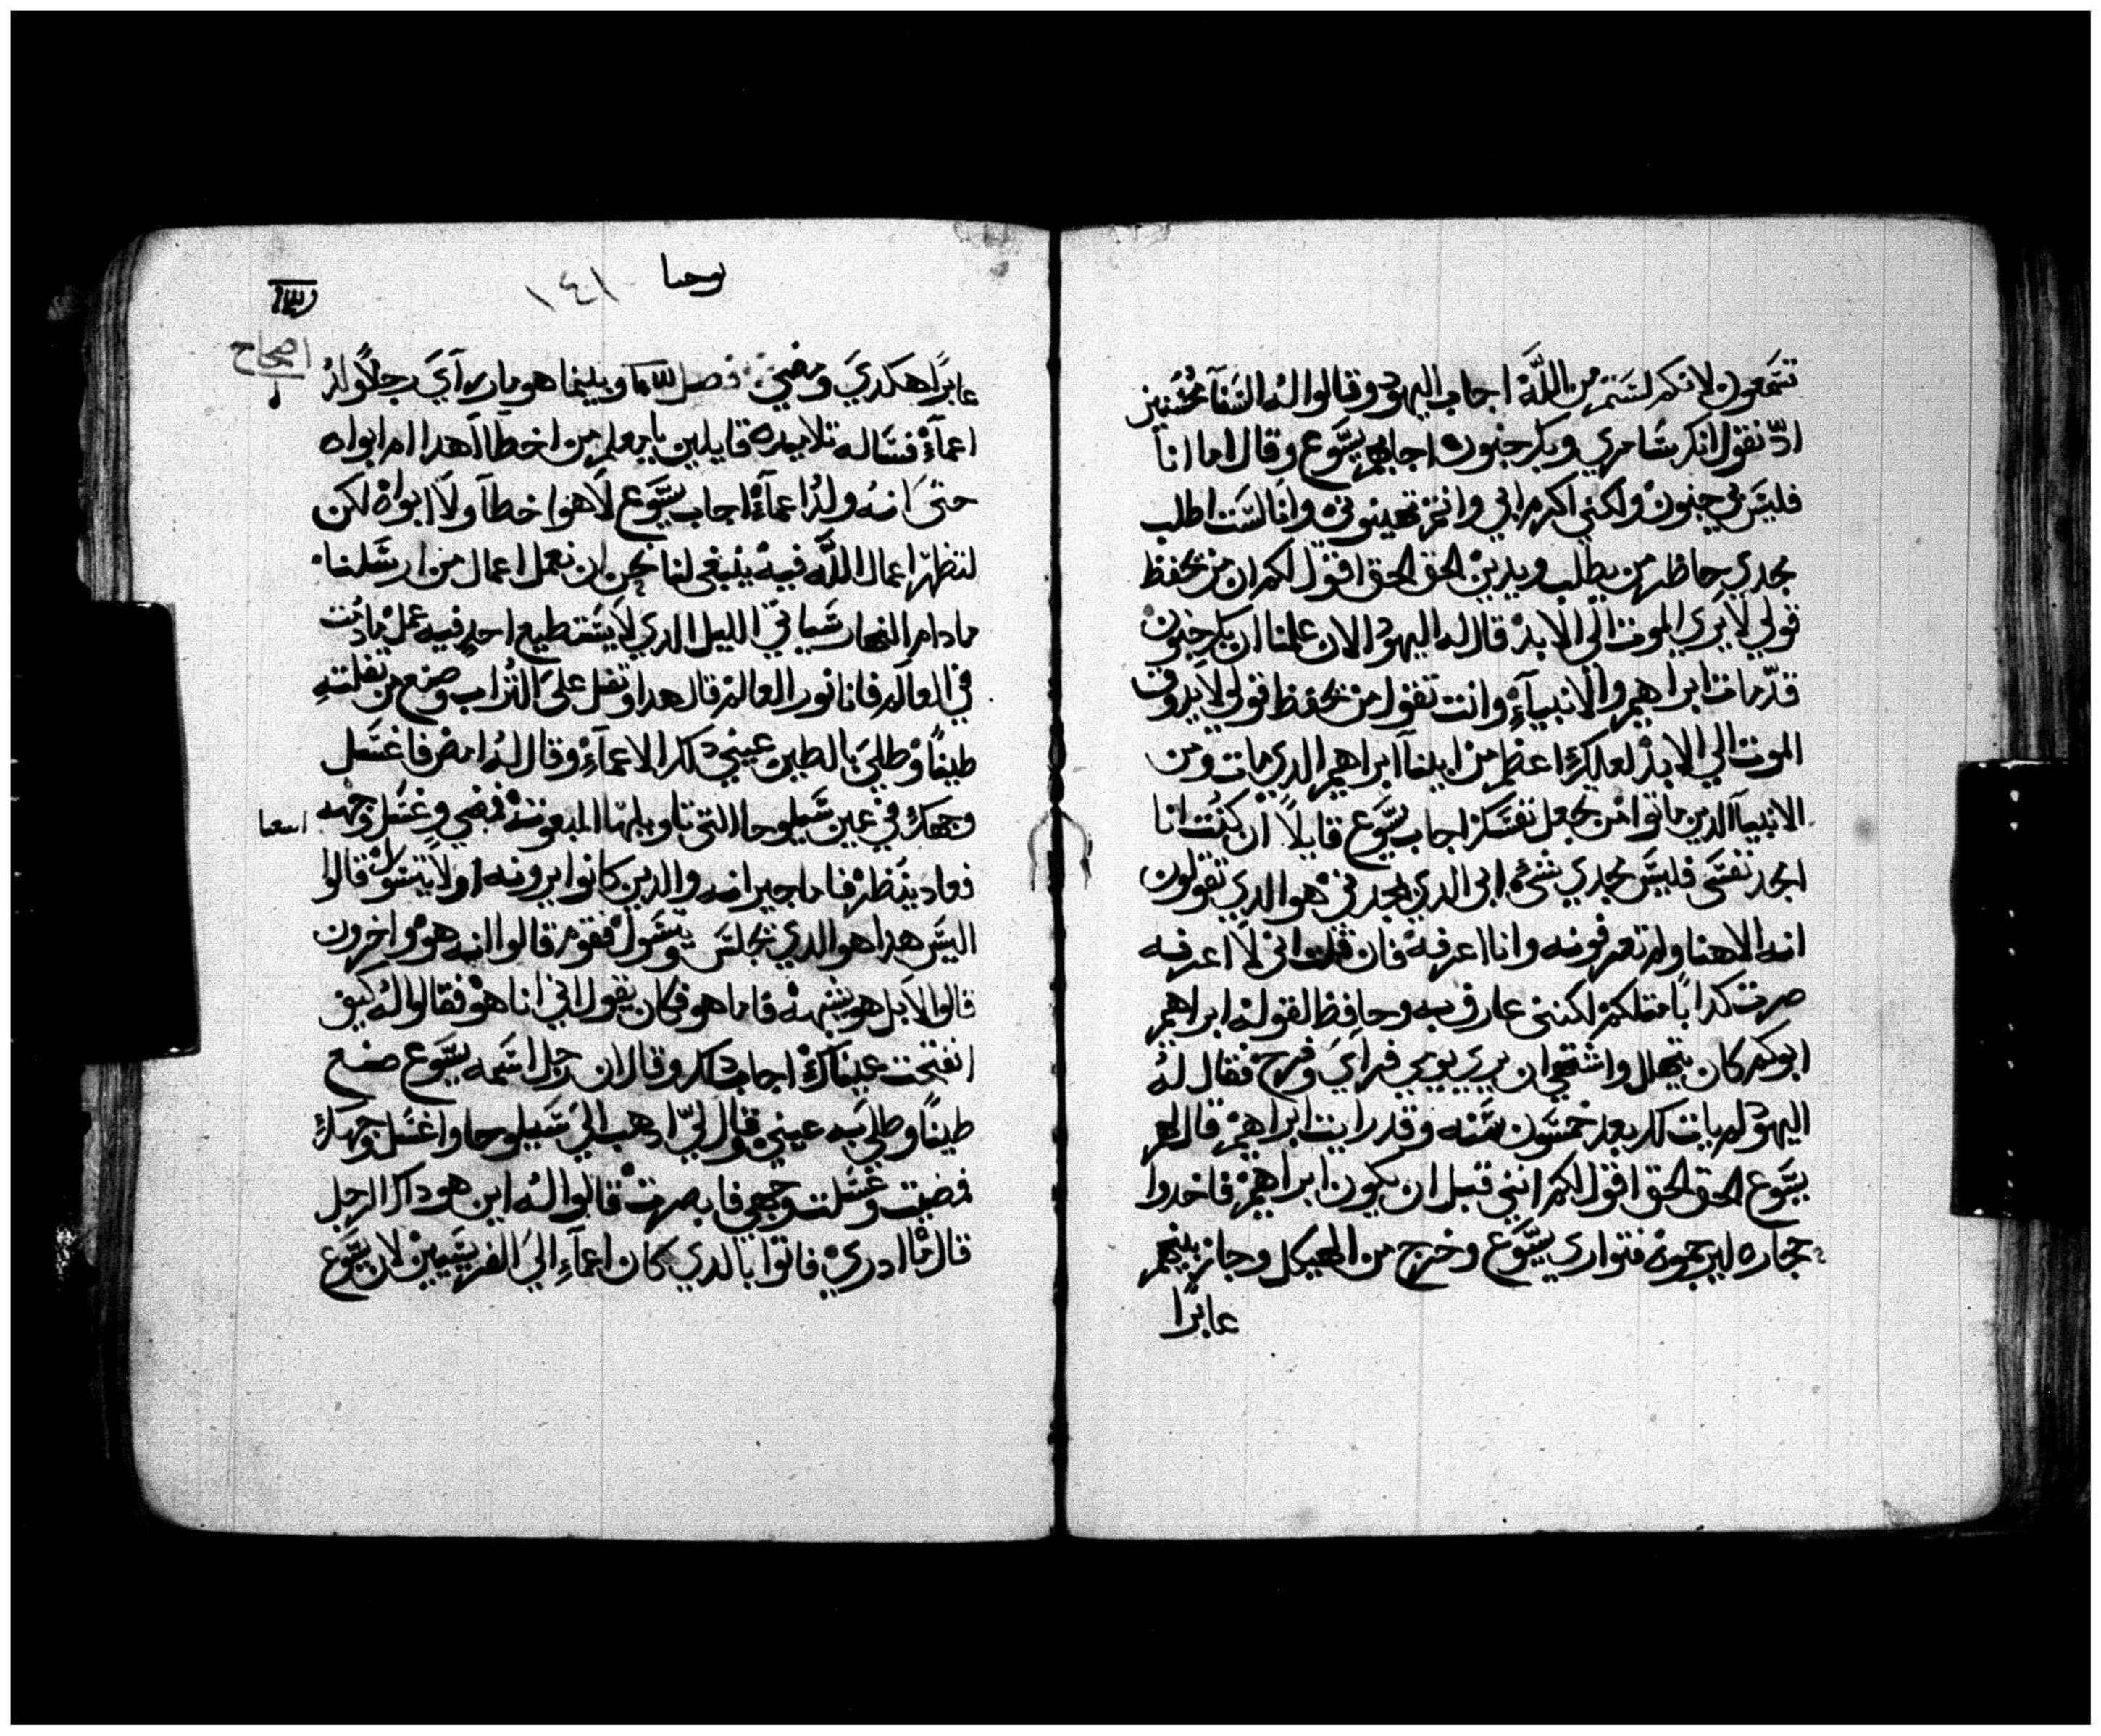 تسمعون لانكم لستم من الله اجاب اليهود وقالوا له السنا محسنين
ادّ نقول انك سامري وبك جنون اجابهم يسوع وقال اما انا
فليس بي جنون ولكني اكرم ابي وانتم تهينوني وانا لست اطلب
مجدي حاظر من يطلب ويدين الحق الحق اقول لكم ان من يحفظ
قولي لا يري الموت الي الابد قال له اليهود الان علمنا ان بك جنون
قد مات ابراهيم والانبياء وانت تقول من يحفظ قولي لا يدوق
الموت الي الابد لعلك اعظم من ابينا ابراهيم الدي مات ومن
الانبيا الدين ماتوا من تجعل نفسك اجاب يسوع قايلاً ان كنت انا
امجد نفسي فليس مجدي شئ ابي الدي يمجدني هو الدي تقولون
انه الاهنا ولم تعرفونه وانا اعرفه فان قلت اني لا اعرفه
صرت كداباً متلكم لكنني عارف به وحافظ لقوله ابراهيم
ابوكم كان يتهلل واشتهي ان يري يومي فراي وفرح فقال له
اليهود لم يات لك بعد خمسون سنه وقد رايت ابراهيم قال لهم
يسوع الحق الحق اقول لكم انني قبل ان يكون ابراهيم فاخدوا
حجاره ليرجموه فتواري يسوع وخرج من الهيكل وجاز بينهم
عابرا
يوحنا
١٤١
اصحاح
عابراً هكدي ومضي فصل وبينما هو مار راي رجلاً ولد
اعماء فساله تلاميده قايلين يا معلم من اخطا اهدا ام ابواه
حتى انه ولد اعماء اجاب يسوع لا هو اخطا ولا ابواه لكن
لتظهر اعمال الله فيه ينبغي لنا نحن ان نعمل اعمال من ارسلنا
ما دام النهار سياتي الليل الدي لا يستطيع احد فيه عمل ما دمت
في العالم فانا نور العالم قال هدا وتفل على التراب وصنع من تفلته
طيناً وطلي بالطين عيني دلك الاعماء وقال له امض فاغسل
وجهك في عين سيلوحا التي تاويلها المبعوته فمضي وغسل وجهه
فعاد ينظر فاما جيرانه والدين كانوا يرونه اولا يتسول قالوا
اليس هدا هو الدي يجلس يتسول فقوم قالوا انه هو واخرون
قالوا لا بل هو يشبهه فاما هو فكان يقول اني انا هو فقالوا له كيف
انفتحت عيناك اجاب داك وقال ان رجل اسمه يسوع صنع
طيناً وطلي به عيني وقال لي ادهب الي سيلوحا واغسل وجهك
فمضيت وغسلت وجهي فابصرت قالوا له اين هو داك الرجل
قال ما ادري فاتوا بالدي كان اعماء الي الفريسيين لان يسوع